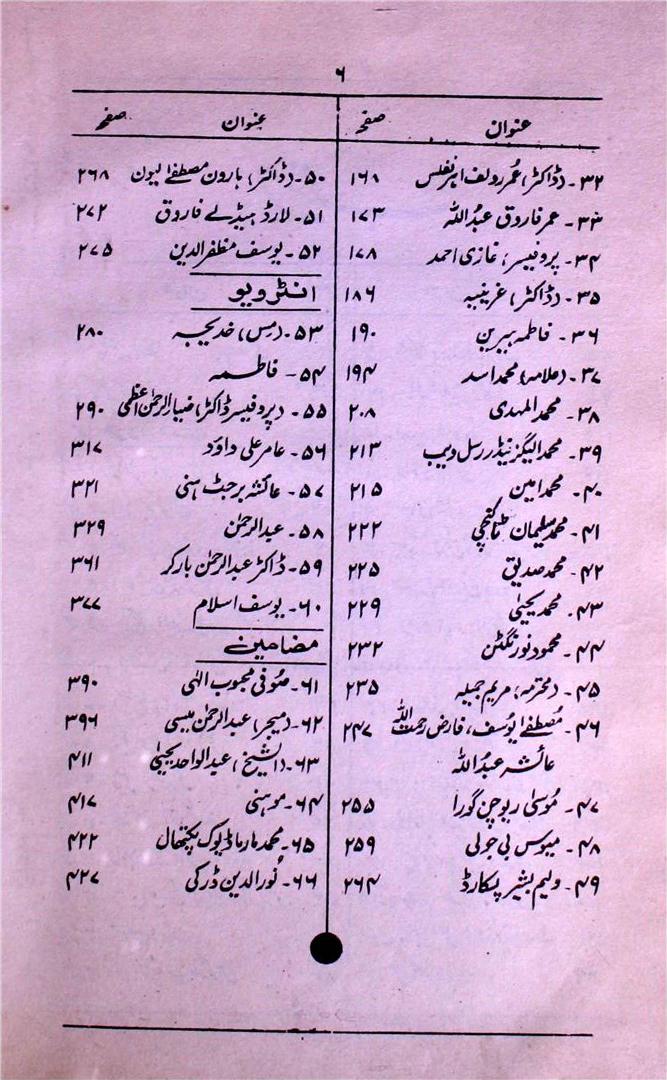 ۶
عنوان صفحہ
۳۲۔ (ڈاکٹر) عمر رولف اہرنفلس ۱۶۸
۳۳۔ عمر فاروق عبدُاللہ ۱۷۳
۳۴۔ پروفیسر، غازی احمد ۱۷۸
۳۵۔ (ڈاکٹر) غرینیہ ۱۸۶
۳۶۔ فاطمہ ہیرین ۱۹۰
۳۷۔ (علامہ) محمد اسد ۱۹۴
۳۸۔ محمد المہدی ۲۰۸
۳۹۔ محمد الیگزینڈر رسل ویب ۲۱۳
۴۰۔ محمد امین ۲۱۵
۴۱۔ محمد سلیمان ۲۲۲
۴۲۔ محمد صدیق ۲۲۵
۴۳۔ محمد یحییٰ ۲۲۹
۴۴۔ محمود نورنگٹن ۲۳۲
۴۵۔ (محترمہ) مریم جمیلہ ۲۳۵
۴۶۔ مُصطفےٰ یُوسف، فارض رحمت اللہ ۲۴۷
عائشہ عبدُاللہ
۴۷۔ مُوسیٰ ریوچن گورا ۲۵۵
۴۸۔ میوس بی جولی ۲۵۹
۴۹۔ ولیم بشیر پکارڈ ۲۶۴
عنوان صفحہ
۵۰۔ (ڈاکٹر) ہارون مصطفےٰ لیون ۲۶۸
۵۱۔ لارڈ ہیڈلے فاروق ۲۷۲
۵۲۔ یوسف مظفر الدین ۲۷۵
انٹرویو
۵۳۔ (مس) خدیجہ ۲۸۰
۵۴۔ فاطمہ
۵۵۔ (پروفیسر ڈاکٹر) ضیاء الرحمٰن اعظمی ۲۹۰
۵۶۔ عامر علی داؤد ۳۱۷
۵۷۔ عائشہ برجٹ ہنی ۳۲۱
۵۸۔ عبدالرحمٰن ۳۲۹
۵۹۔ ڈاکٹر عبدالرحمٰن بارکر ۳۶۱
۶۰۔ یوسف اسلام ۳۷۷
مضامین
۶۱۔ صُوفی محبوب الٰہی ۳۹۰
۶۲۔ (میجر) عبدالرحمٰن میسی ۳۹۶
۶۳۔ (الشیخ) عبدالواحد یحییٰ ۴۱۱
۶۴۔ موہنی ۴۱۷
۶۵۔ محمد مارماڈیوک پکتھال ۴۲۲
۶۶۔ نُورالدین ڈرکی ۴۲۷